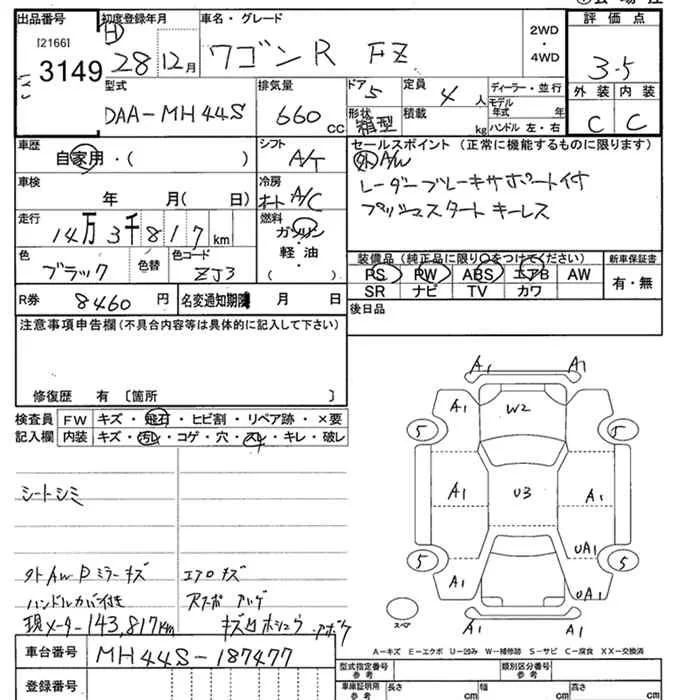 出品番号
[21661]
3149
初度登録年月
H 28年 12月
車名・グレード
ワゴンR FZ
2WD
・
4WD
評価点
3.5
外装 内装
C C
型式
DAA-MH44S
排気量
660 cc
ドア 5
定員 4人
形状 箱型
積載 kg
ディーラー・並行
モデル年式 年
ハンドル 左・右
車歴
自家用・( )
シフト
A/T
セールスポイント (正常に機能するものに限ります)
外A/W
レーダーブレーキサポート付
プッシュスタートキーレス
車検
年 月( 日)
冷房
オートA/C
走行
14万3千817km
燃料
ガソリン
軽油
( ・ )
色
ブラック
色替
色コード
ZJ3
装備品 (純正品に限り○をつけてください)
PS PW ABS エアB AW
SR ナビ TV カワ
新車保証書
有・無
R券 8460円
名変通知期限 月 日
後日品
注意事項申告欄(不具合内容等は具体的に記入して下さい)
修復歴 有 〔箇所 〕
検査員 FW キズ・飛石・ヒビ割・リペア跡・×要
記入欄 内装 キズ・汚レ・コゲ・穴・スレ・キレ・破レ
シートシミ
外AW Pミラーキズ
ハンドルカバー付も
現メーター143,817km
エアロキズ
キズ凹ホシュウ
A1 A1
A1 W2
5 5
A1 U3 A1
UA1
5 5
A1 UA1
A1 A1
スペア
A-キズ E-エクボ U-凹み W-補修跡 S-サビ C-腐食 XX-交換済
車台番号
MH44S-187477
登録番号
型式指定番号 参考
類別区分番号 参考
車庫証明用 参考
長さ cm
幅 cm
高さ cm